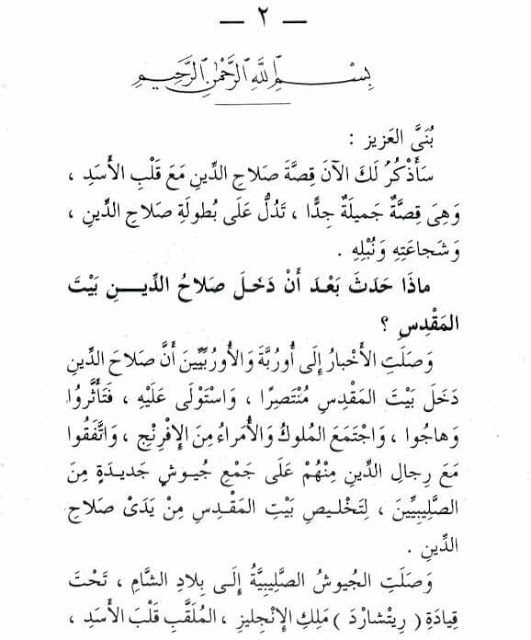 — ٢ —
بِسْمِ اللهِ الرَّحْمٰنِ الرَّحِيمِ
بُنَىَّ العَزِيز :
سَأَذْكُرُ لَكَ الآنَ قِصَّةَ صَلَاحِ الدِّينِ مَعَ قَلْبِ الأَسَدِ ،
وَهِىَ قِصَّةٌ جَمِيلَةٌ جِدًّا ، تَدُلُّ عَلَى بُطولَةِ صَلَاحِ الدِّينِ ،
وَشَجاعَتِهِ وَنُبْلِهِ .
ماذَا حَدَثَ بَعْدَ أَنْ دَخَلَ صَلاحُ الدِّيــنِ بَيْتَ
المَقْدِسِ ؟
وَصَلَتِ الأَخْبارُ إِلَى أُورُبَّةَ وَالأُورُبِّيِّينَ أَنَّ صَلَاحَ الدِّينِ
دَخَلَ بَيْتَ المَقْدِسِ مُنْتَصِرًا ، وَاسْتَوْلَى عَلَيْهِ ، فَتَأَثَّرُوا
وَهاجُوا ، وَاجْتَمَعَ المُلوكُ وَالأُمَراءُ مِنَ الإِفْرِنْجِ ، وَاتَّفَقُوا
مَعَ رِجالِ الدِّينِ مِنْهُمْ عَلَى جَمْعِ جُيوشٍ جَدِيدَةٍ مِنَ
الصَّلِيبِيِّينَ ، لِتَخْلِيصِ بَيْتِ المَقْدِسِ مِنْ يَدَىْ صَلَاحِ
الدِّينِ .
وَصَلَتِ الجُيوشُ الصَّلِيبِيَّةُ إِلَى بِلَادِ الشَّامِ ، تَحْتَ
قِيادَةِ ( رِيتْشارْدَ ) مَلِكِ الإِنْجِلِيزِ ، المُلَقَّبِ قَلْبَ الأَسَدِ ،